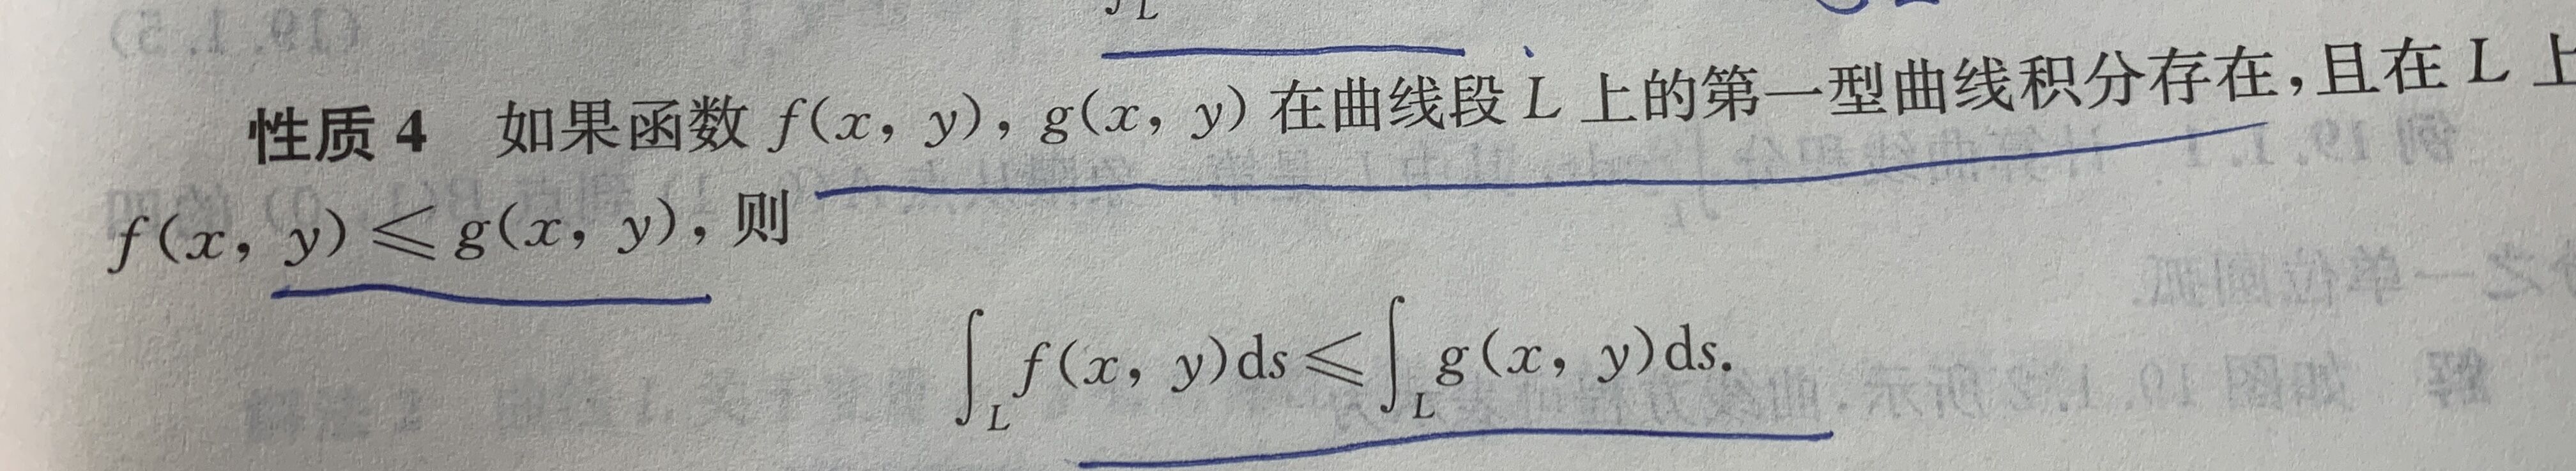 性质 4 如果函数 f(x, y), g(x, y) 在曲线段 L 上的第一型曲线积分存在,且在 L 上
f(x, y) ⩽ g(x, y), 则
∫_L f(x, y)ds ⩽ ∫_L g(x, y)ds.